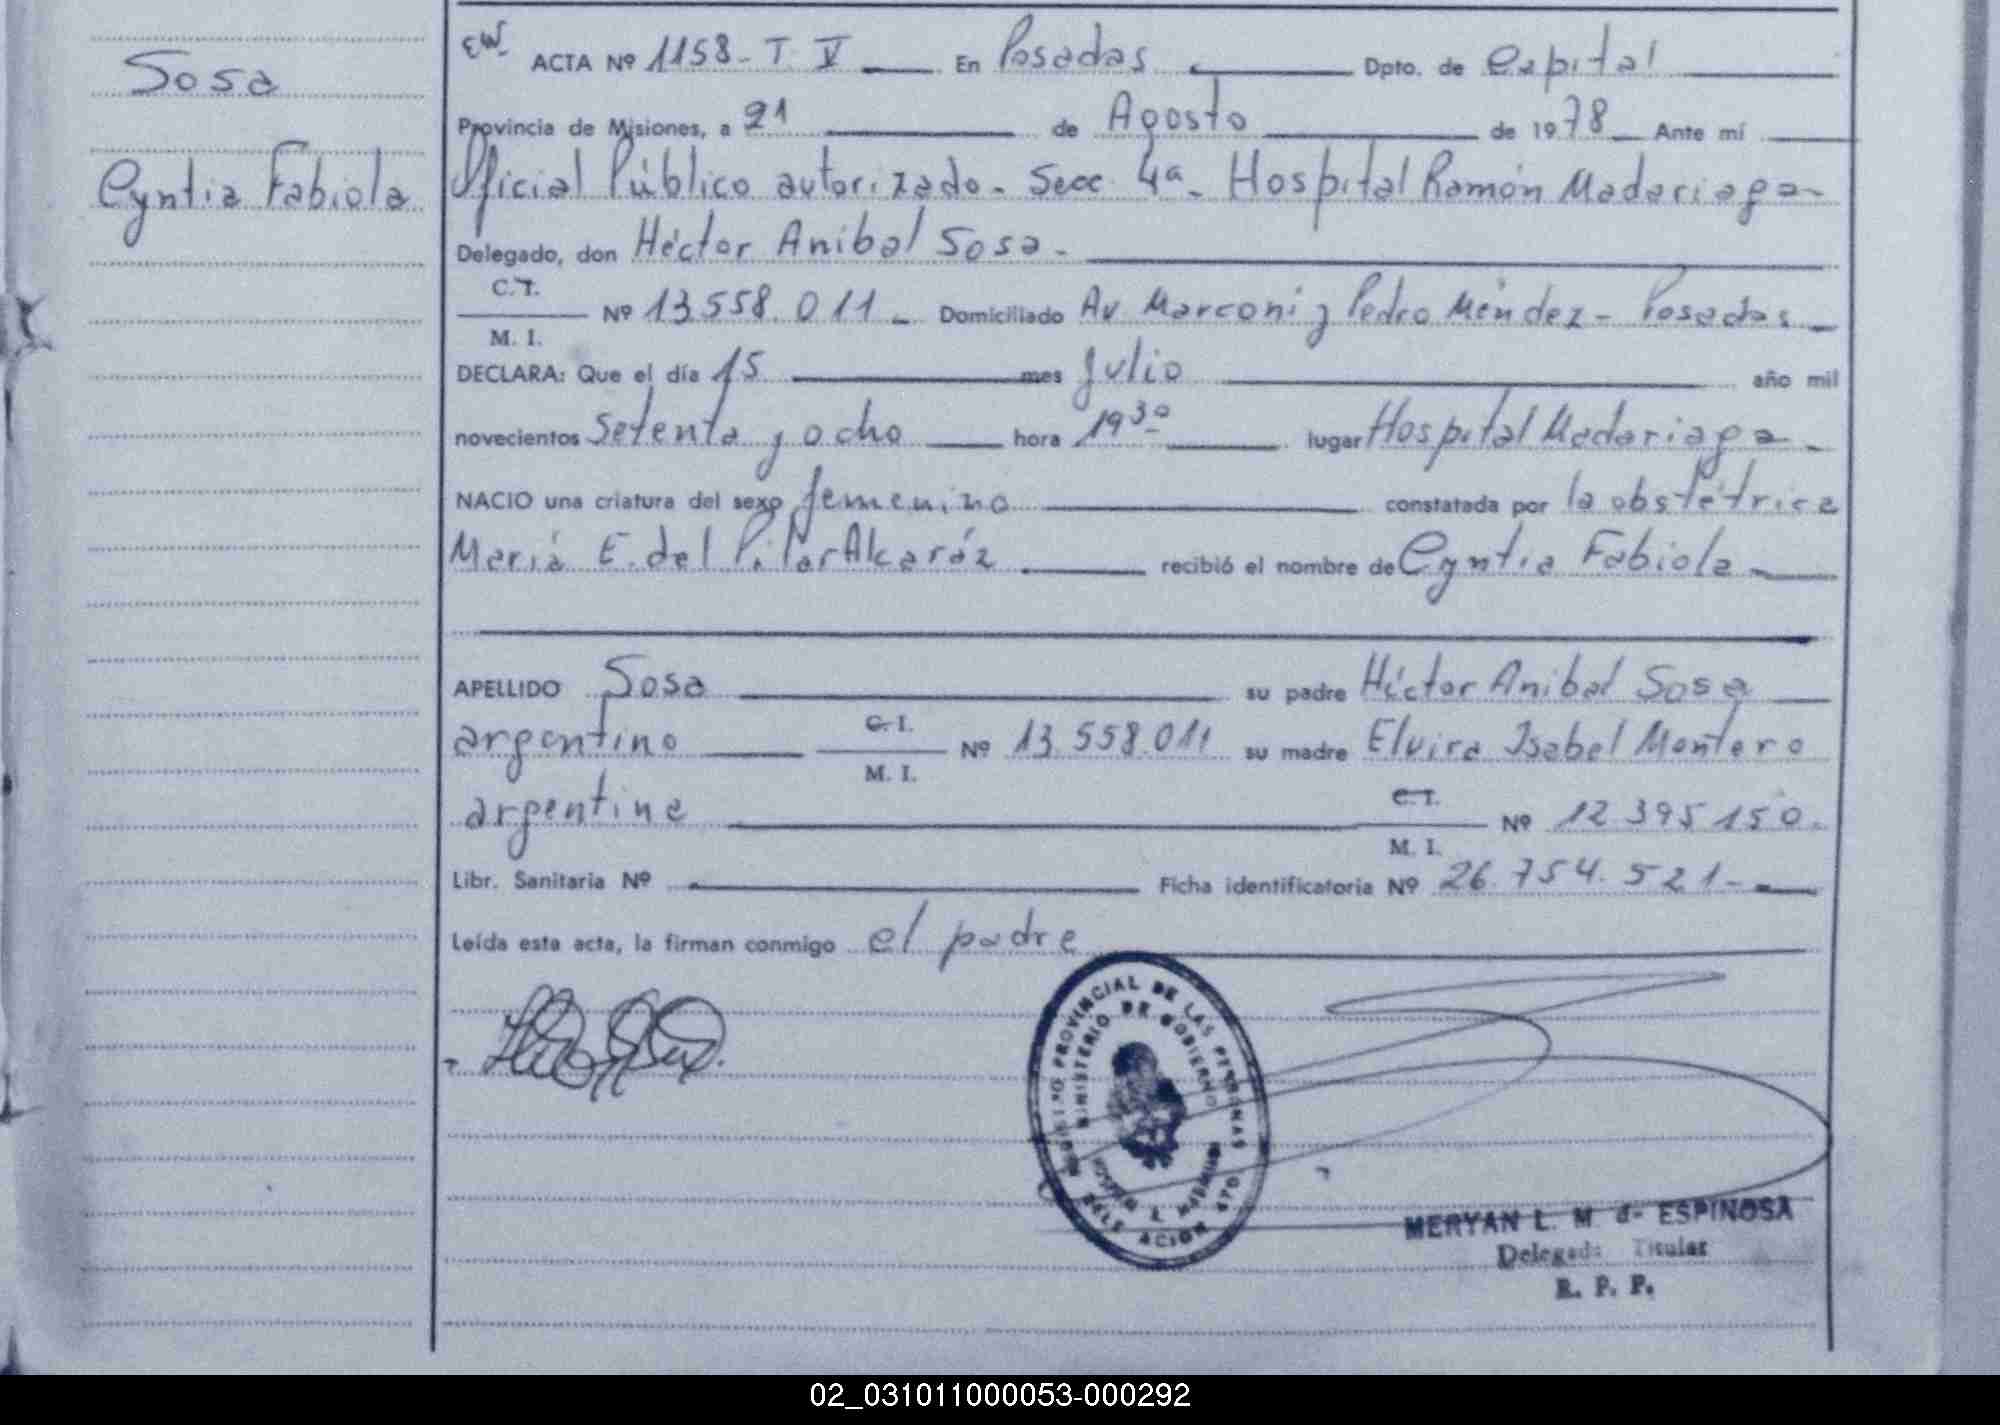 Sosa
Cyntia Fabiola
ACTA Nº 1158 - T. V En Posadas Dpto. de Capital
Provincia de Misiones, a 21 de Agosto de 1978 Ante mí
Oficial Público autorizado - Secc. 4ª - Hospital Ramón Madariaga -
Delegado, don Héctor Anibal Sosa -
C.I.
M. I.
Nº 13.558.011 - Domiciliado Av Marconi y Pedro Méndez - Posadas -
DECLARA: Que el día 15 mes Julio año mil
novecientos Setenta y ocho hora 19 30 lugar Hospital Madariaga -
NACIO una criatura del sexo femenino constatada por la obstétrica
María E. del Pilar Alcaráz recibió el nombre de Cyntia Fabiola -
APELLIDO Sosa su padre Héctor Anibal Sosa
argentino C.I. Nº 13.558.011 su madre Elvira Isabel Montero
M. I.
argentina C.I. Nº 12.395.150.
M. I.
Libr. Sanitaria Nº Ficha identificatoria Nº 26.754.521 -
Leída esta acta, la firman conmigo el padre
PROVINCIAL DE LAS PERSONAS
MINISTERIO DE GOBIERNO
MERYAN L. M. de ESPINOSA
Delegada Titular
R. P. P.
02_031011000053-000292